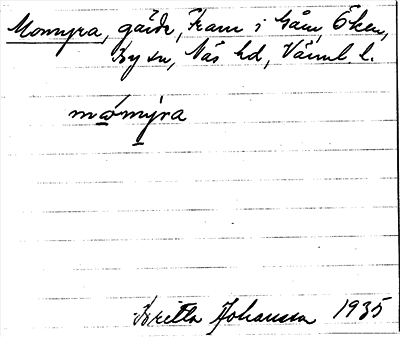 Momyra, gärde, Fram i Går, Öken,
By sn, Näs hd, Värml l.
mómýra
Britta Johansson 1935